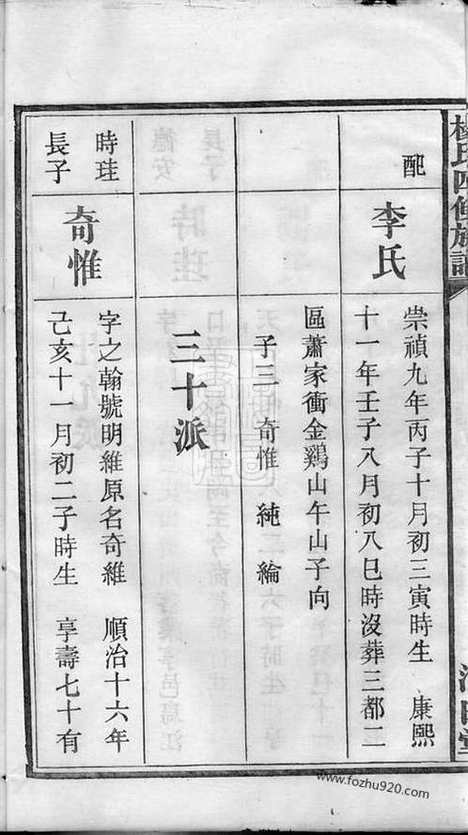 楊氏四修族譜
配
李氏
崇禎九年丙子十月初三寅時生 康熙
十一年壬子八月初八巳時沒葬三都二
區蕭家衝金鷄山午山子向
子三 奇惟 純 綸
三十派
時珪
長子
奇惟
字之翰號明維原名奇維 順治十六年
己亥十一月初二子時生 享壽七十有
www.fozhu920.com